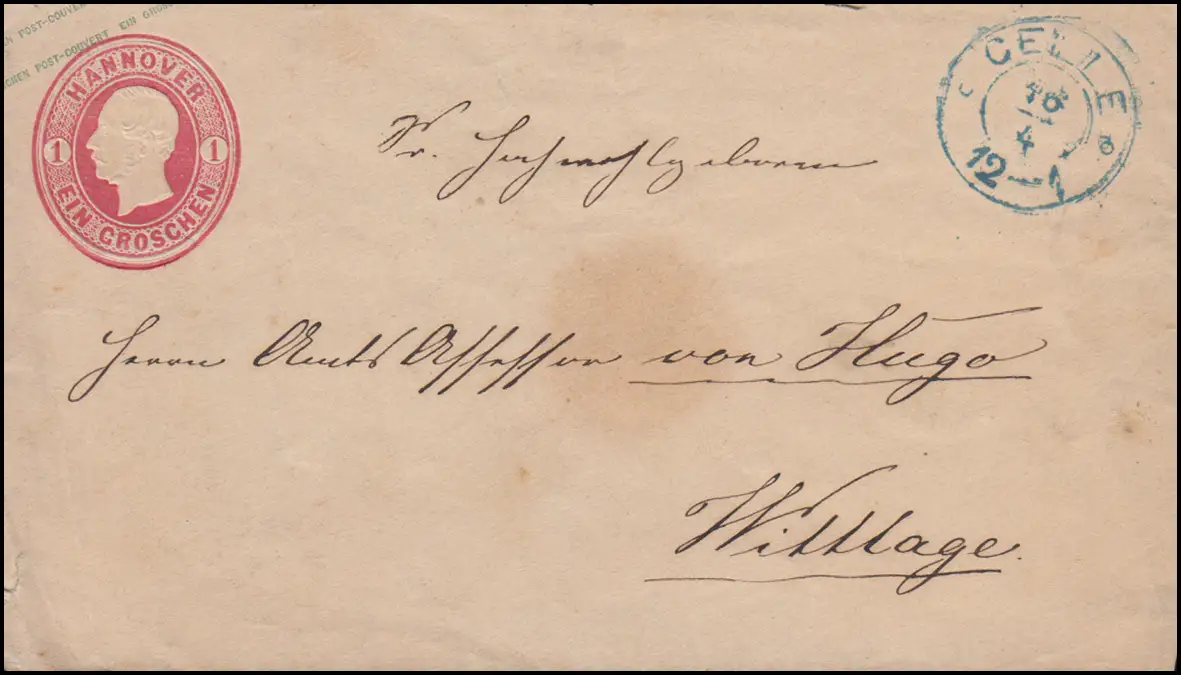 EN POST-COUVERT
CHEN POST-COUVERT EIN GROSC
HANNOVER
1 1
EIN GROSCHEN
CELLE
4
12—1
Sr. Hochwohlgeboren
Herrn Amts Assessor von Hugo
Wittlage.